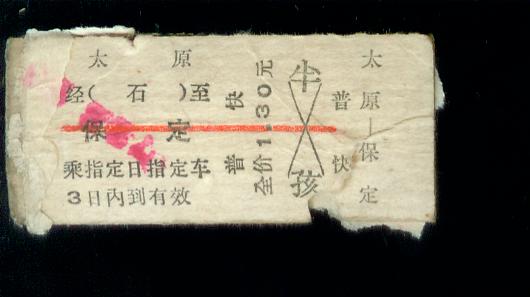 太原
经(石)至
保定
乘指定日指定车
3日内到有效
普快
全价1.30元
半
孩
普快
太原—保定